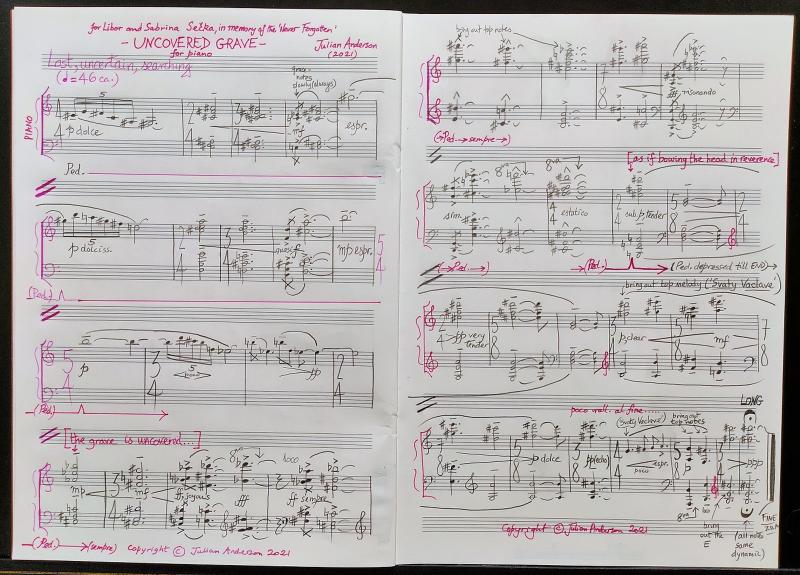 for Libor and Sabrina Sežka, in memory of the 'Never Forgotten'
- UNCOVERED GRAVE -
for piano
Julian Anderson
(2021)
Lost, uncertain, searching
(♩=46 ca.)
grace-notes
slowly (always)
PIANO
5
p dolce
mf
espr.
Ped.
p dolciss.
5
mp espr.
(Ped.)
p
5
pp
(Ped.)
[the grave is uncovered...]
8va
loco
mp
mf
ff joyous
fff
ff sempre
(Ped.) (sempre)
Copyright © Julian Anderson 2021
bring out top notes
fff risonando
(→Ped.→ sempre→)
[as if bowing the head in reverence]
8va
8va
sim.
estatico
sub. p tender
(→Ped.→)
(Ped.)
(Ped. depressed till END)→
bring out top melody ('Svaty Vaclave')
pp very tender
p, clear
mf
poco rall. al fine......
LONG
(Svaty Vaclave)
bring out
top notes
p dolce
pp (echo)
poco
espr.
p
ppp
8va
bring
out the
E
(all notes
same
dynamic)
FINE
Copyright © Julian Anderson 2021